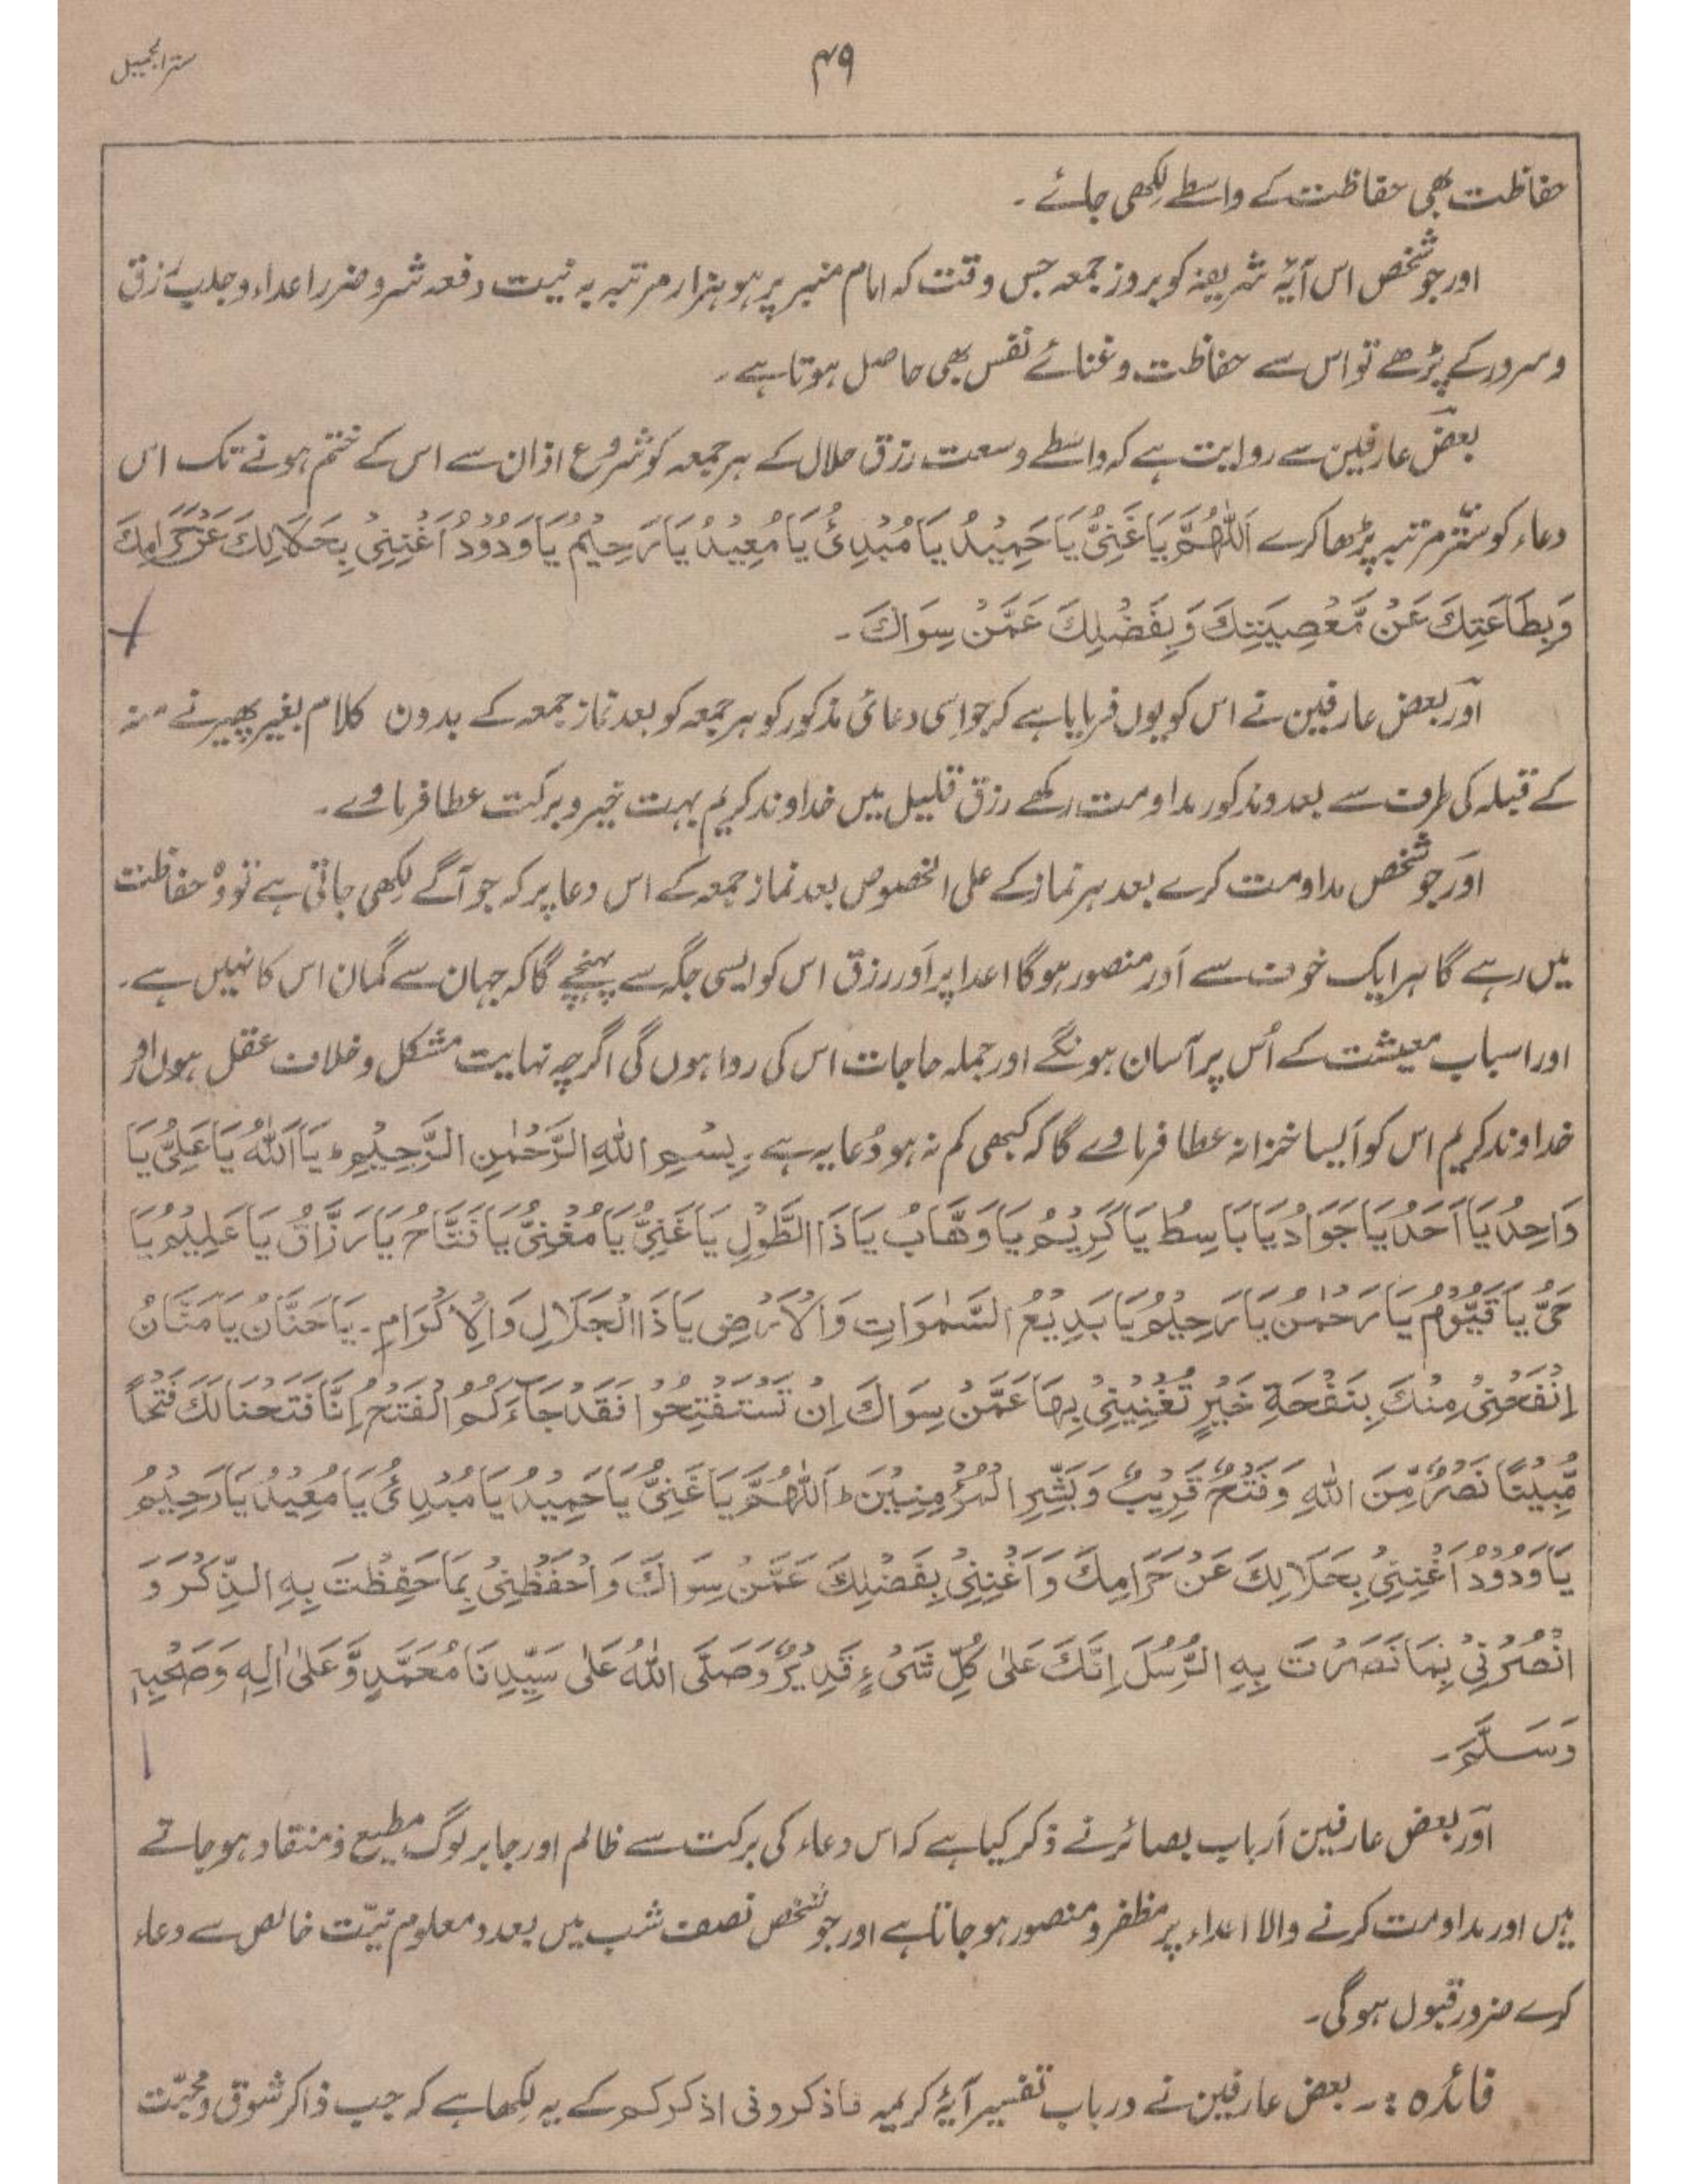 سترالجمیل
۴۹
حفاظت بھی حفاظت کے واسطے لکھی جائے ۔
اور جو شخص اس آیۂ شریفہ کو بروز جمعہ جس وقت کہ امام منبر پر ہو ہزار مرتبہ بہ نیت دفعہ شر و ضرر اعداء و جلب رزق
و سرور کے پڑھے تو اس سے حفاظت و غنائے نفس بھی حاصل ہوتا ہے ۔
بعض عارفین سے روایت ہے کہ واسطے وسعت رزق حلال کے ہر جمعہ کو شروع اذان سے اس کے ختم ہونے تک اس
دعاء کو ستّر مرتبہ پڑھا کرے اَللّٰھُمَّ یَا غَنِیُّ یَا حَمِیْدُ یَا مُبْدِیُٔ یَا مُعِیْدُ یَا رَحِیْمُ یَا وَدُوْدُ اَغْنِنِیْ بِحَلَالِكَ عَنْ حَرَامِكَ
وَبِطَاعَتِكَ عَنْ مَّعْصِیَتِكَ وَبِفَضْلِكَ عَمَّنْ سِوَاكَ ۔
اور بعض عارفین نے اس کو یوں فرمایا ہے کہ جو اسی دعائی مذکور کو ہر جمعہ کو بعد نماز جمعہ کے بدون کلام بغیر پھیرنے منہ
کے قبلہ کی طرف سے بعدد مذکور مداومت رکھے رزق قلیل میں خداوند کریم بہت خیر و برکت عطا فرماوے ۔
اور جو شخص مداومت کرے بعد ہر نماز کے علی الخصوص بعد نماز جمعہ کے اس دعا پر کہ جو آگے لکھی جاتی ہے تو وہ حفاظت
میں رہے گا ہر ایک خوف سے اور منصور ہو گا اعدا پر اور رزق اس کو ایسی جگہ سے پہنچے گا کہ جہان سے گمان اس کا نہیں ہے ۔
اور اسباب معیشت کے اُس پر آسان ہونگے اور جملہ حاجات اس کی روا ہوں گی اگرچہ نہایت مشکل و خلاف عقل ہوں اور
خداوند کریم اس کو ایسا خزانہ عطا فرماوے گا کہ کبھی کم نہ ہو دُعا یہ ہے ۔ بِسْمِ اللّٰہِ الرَّحْمٰنِ الرَّحِیْمِ ط یَا اَللّٰہُ یَا عَلِیُّ یَا
وَاحِدُ یَا اَحَدُ یَا جَوَادُ یَا بَاسِطُ یَا کَرِیْمُ یَا وَھَّابُ یَا ذَا الطَّوْلِ یَا غَنِیُّ یَا مُغْنِیُّ یَا فَتَّاحُ یَا رَزَّاقُ یَا عَلِیْمُ یَا
حَیُّ یَا قَیُّوْمُ یَا رَحْمٰنُ یَا رَحِیْمُ یَا بَدِیْعُ السَّمٰوَاتِ وَالْاَرْضِ یَا ذَا الْجَلَالِ وَالْاِکْرَامِ ۔ یَا حَنَّانُ یَا مَنَّانُ
اِنْفَحْنِیْ مِنْكَ بِنَفْحَةِ خَیْرٍ تُغْنِیْنِیْ بِھَا عَمَّنْ سِوَاكَ اِنْ تَسْتَفْتِحُوْا فَقَدْ جَآءَکُمُ الْفَتْحُ اِنَّا فَتَحْنَا لَكَ فَتْحًا
مُّبِیْنًا نَصْرٌ مِّنَ اللّٰہِ وَفَتْحٌ قَرِیْبٌ وَبَشِّرِ الْمُؤْمِنِیْنَ ط اَللّٰھُمَّ یَا غَنِیُّ یَا حَمِیْدُ یَا مُبْدِیُٔ یَا مُعِیْدُ یَا رَحِیْمُ
یَا وَدُوْدُ اَغْنِنِیْ بِحَلَالِكَ عَنْ حَرَامِكَ وَاَغْنِنِیْ بِفَضْلِكَ عَمَّنْ سِوَاكَ وَاحْفَظْنِیْ بِمَا حَفِظْتَ بِہِ الذِّکْرَ وَ
انْصُرْنِیْ بِمَا نَصَرْتَ بِہِ الرُّسُلَ اِنَّكَ عَلٰی کُلِّ شَیْءٍ قَدِیْرٌ وَصَلَّی اللّٰہُ عَلٰی سَیِّدِنَا مُحَمَّدٍ وَّعَلٰی اٰلِہٖ وَصَحْبِہٖ
وَسَلَّمَ ۔
اور بعض عارفین ارباب بصائر نے ذکر کیا ہے کہ اس دعاء کی برکت سے ظالم اور جابر لوگ مطیع و منقاد ہو جاتے
ہیں اور مداومت کرنے والا اعداء پر مظفر و منصور ہو جاتا ہے اور جو شخص نصف شب میں بعدد معلوم نیّت خالص سے دعاء
کرے ضرور قبول ہو گی ۔
فائدہ :۔ بعض عارفین نے درباب تفسیر آیۂ کریمہ فاذکرونی اذکرکم کے یہ لکھا ہے کہ جب ذاکر شوق و محبّت